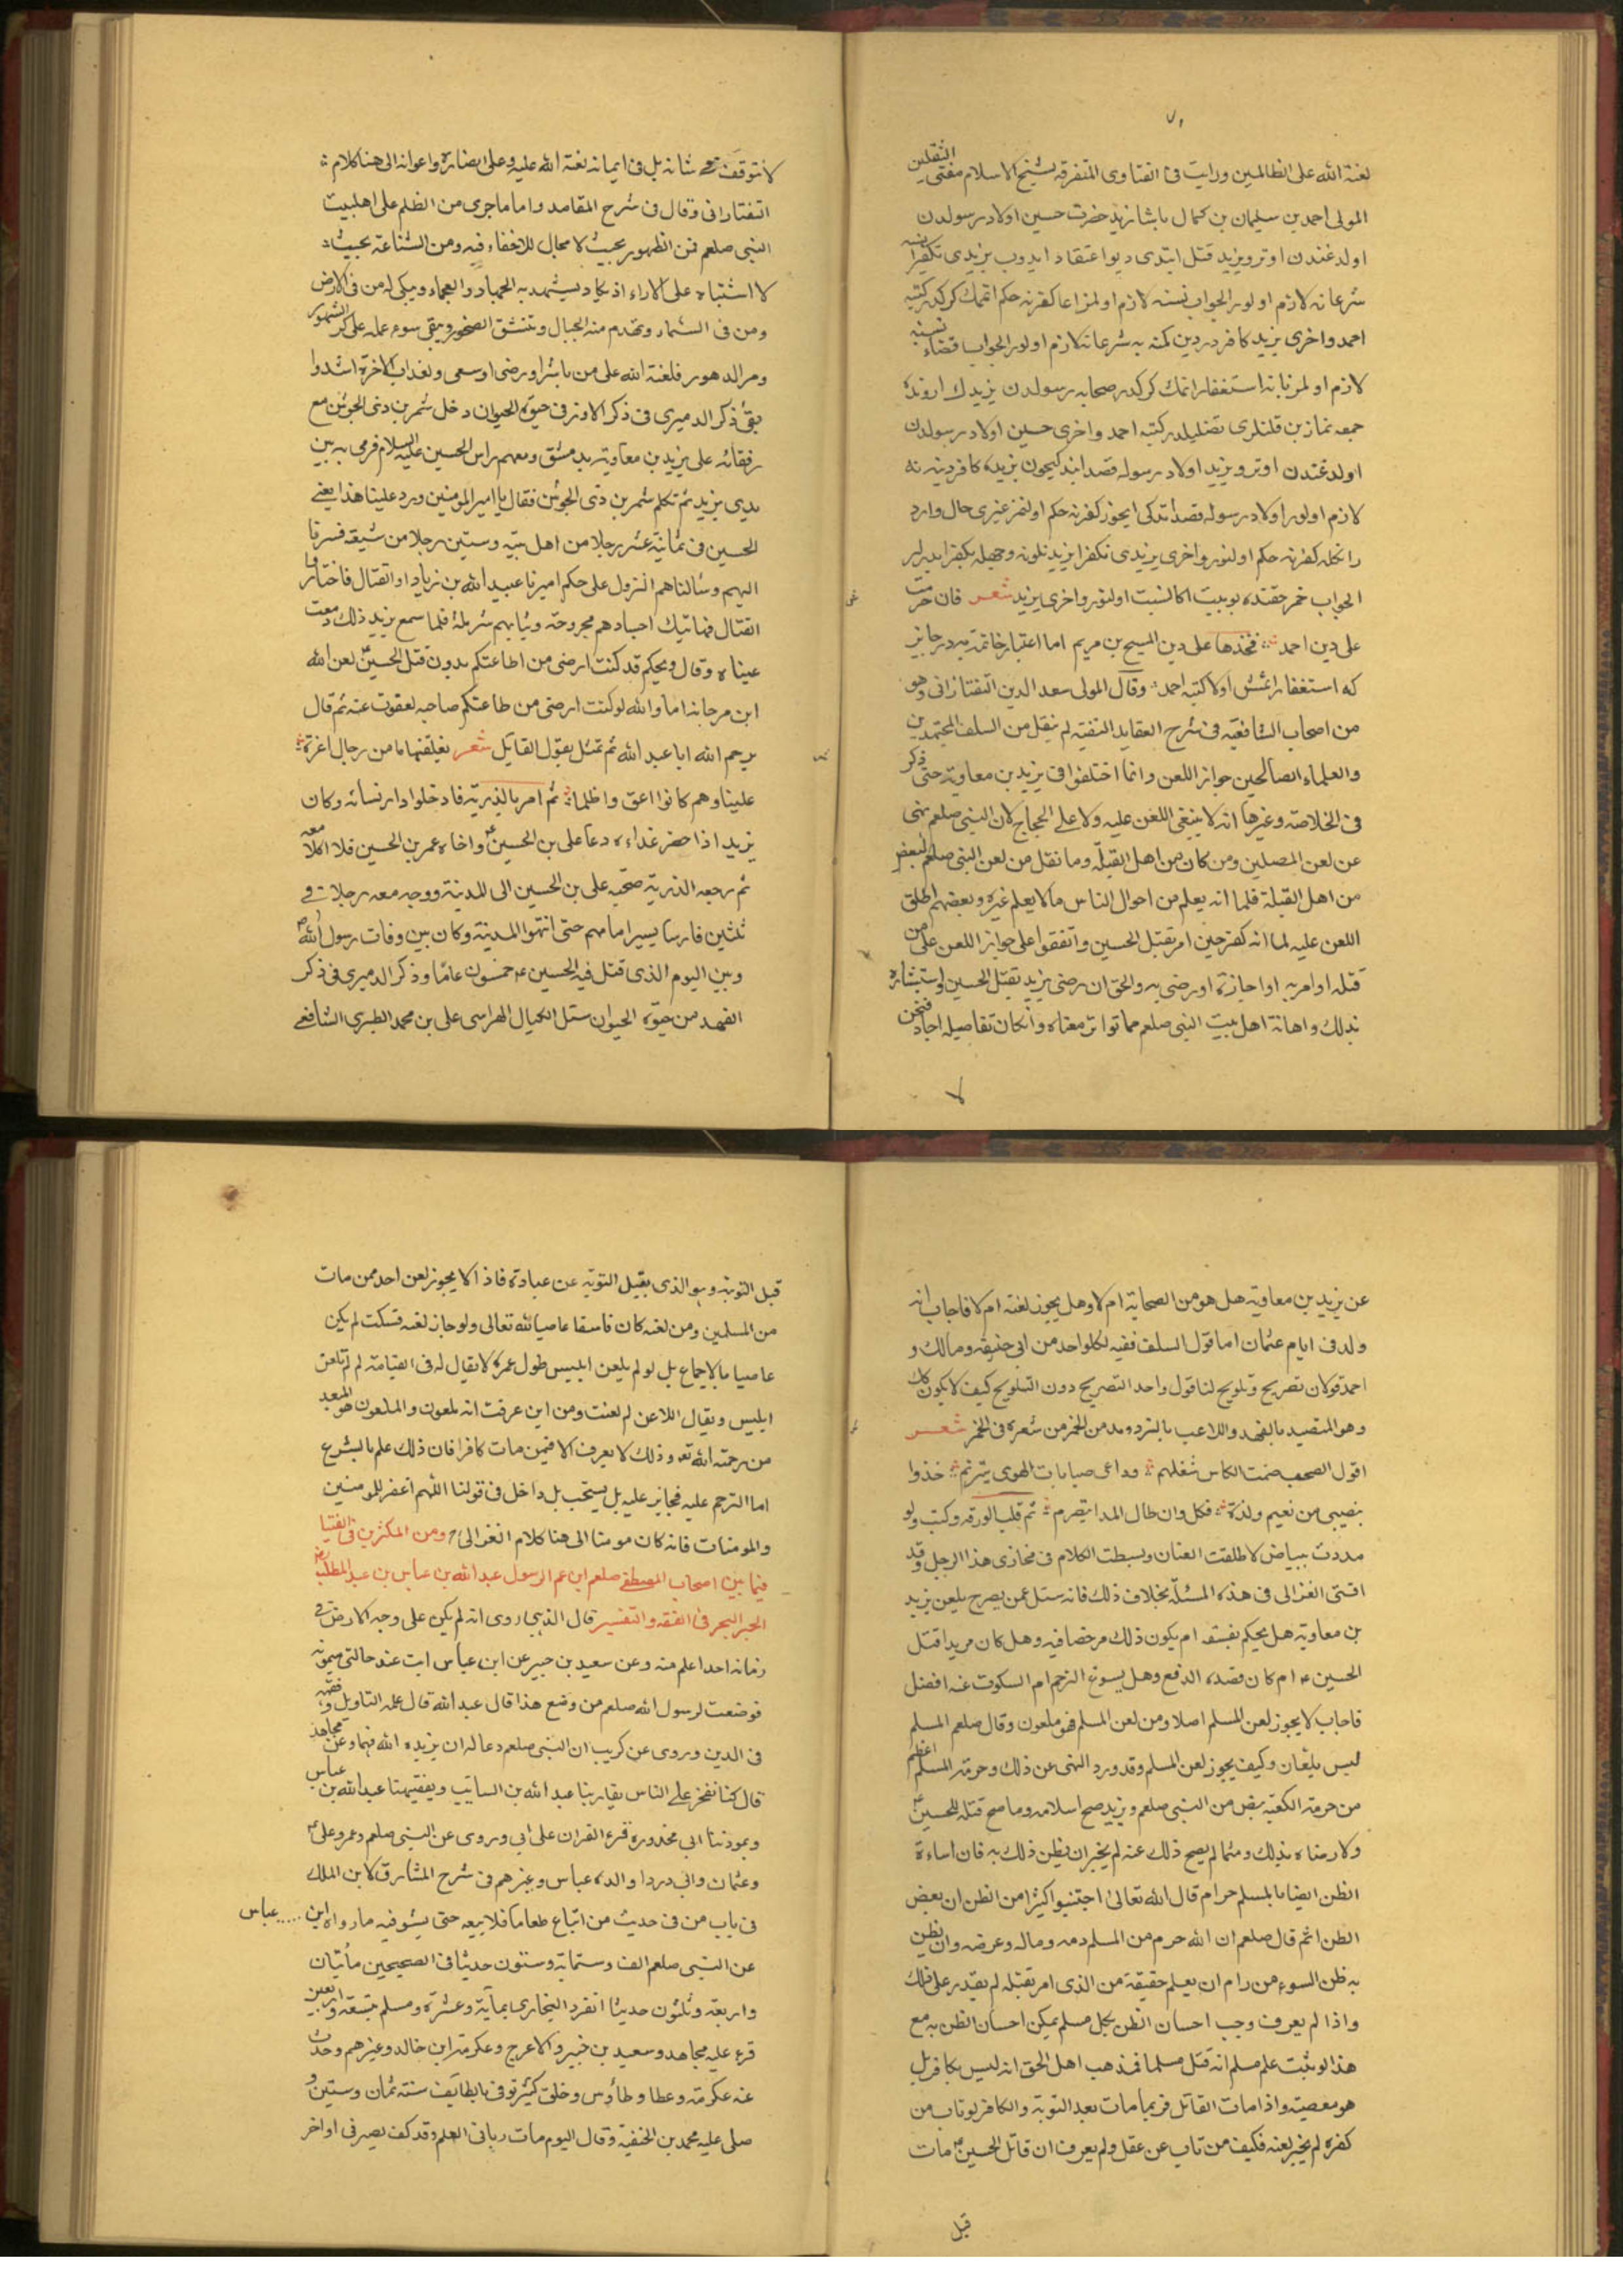 لعنة الله على الظالمين ورايت فى الفتاوى المتفرقه لشيخ الاسلام مفتى الثقلين
المولى احمد بن سليمان بن كمال پاشا زيد حضرت حسين اولاد رسولدن
اولدغندن اوترو يزيد قتل ايتدى ديو اعتقاد ايدوب يزيدى تكفير ايتسه
شرعا نه لازم اولور الجواب نسنه لازم اولمز اما كفرنه حكم اتمك كركدر كتبه
احمد واخرى يزيد كافردر دين كمنه يه شرعا نه لازم اولور الجواب قضاء نسنه
لازم اولمز نابه استغفار اتمك كركدر صحابه رسولدن يزيدك اردنده
جمعه نمازين قلنلرى تضليلدر كتبه احمد واخرى حسين اولاد رسولدن
اولدغندن اوترو يزيد اولاد رسوله قصد ايتدكيچون يزيده كافر دينه نه
لازم اولور اولاد رسوله قصد ايتدكى ايچون كفرنه حكم اولنمز غيرى حال وارد
رانكله كفرنه حكم اولنور واخرى يزيدى تكفير ايدنلر نه وجهله تكفير ايدرلر
الجواب خمر حقنده بو بيت اكا نسبت اولنور واخرى يزيد شعر فان حرمت
على دين احمد فخذها على دين المسيح بن مريم اما اعتبار خاتمه يه در جايز
كه استغفار اتمش اولا كتبه احمد وقال المولى سعد الدين التفتازانى وهو
من اصحاب الشافعيه فى شرح العقايد النسفيه لم ينقل من السلف المجتهدين
والعلماء الصالحين جواز اللعن وانما اختلفوا فى يزيد بن معاوية حتى ذكر
فى الخلاصه وغيرها انه لا ينبغى اللعن عليه ولا على الحجاج لان النبى صلعم نهى
عن لعن المصلين ومن كان من اهل القبلة وما نقل من لعن النبى صلعم لبعض
من اهل القبلة فلما انه يعلم من احوال الناس ما لا يعلم غيره وبعضهم اطلق
اللعن عليه لما انه كفر حين امر بقتل الحسين واتفقوا على جواز اللعن على من
قتله او امر به او اجازه او رضى به والحق ان رضى يزيد بقتل الحسين واستبشاره
بذلك واهانة اهل بيت النبى صلعم مما تواتر معناه وان كان تفاصيله احاد فنحن
لا نتوقف فى شانه بل فى ايمانه لعنة الله عليه وعلى انصاره واعوانه الى هنا كلام
التفتازانى وقال فى شرح المقاصد واما ما جرى من الظلم على اهل بيت
النبى صلعم فمن الظهور بحيث لا مجال للاخفاء فيه ومن الشناعة بحيث
لا اشتباه على الاراء اذ يكاد يشهد به الجماد والعجماء ويبكى له من فى الارض
ومن فى السماء وتهدم منه الجبال وتنشق الصخور ويبقى سوء عمله على كر الشهور
ومر الدهور فلعنة الله على من باشر او رضى او سعى ولعذاب الاخرة اشد وا
بقى ذكر الدميرى فى ذكر الاوز فى حيوة الحيوان دخل شمر بن ذى الجوشن مع
رفقائه على يزيد بن معاوية بدمشق ومعهم راس الحسين عليه السلام فرمى به بين
يدى يزيد ثم تكلم شمر بن ذى الجوشن فقال يا امير المومنين ورد علينا هذا يعنى
الحسين فى ثمانية عشر رجلا من اهل بيته وستين رجلا من شيعته فسرنا
اليهم وسالناهم النزول على حكم اميرنا عبيد الله بن زياد او القتال فاختاروا
القتال فهاتيك اجسادهم مجروحة وثيابهم مزملة فلما سمع يزيد ذلك دمعت
عيناه وقال ويحكم قد كنت ارضى من اطاعتكم بدون قتل الحسين لعن الله
ابن مرجانه اما والله لو كنت ارضى من طاعتكم صاحبه لعفوت عنه ثم قال
يرحم الله ابا عبد الله ثم تمثل بقول القايل شعر يفلقن هاما من رجال اعزة
علينا وهم كانوا اعق واظلما ثم امر بالذرية فادخلوا دار نسائه وكان
يزيد اذا حضر غداءه دعا على بن الحسين واخاه عمر بن الحسين فلا اكلا معه
ثم رجعه الذرية صحبه على بن الحسين الى المدينة ووجه معه رجلا فى
ثلثين فارسا يسير امامهم حتى انتهوا المدينة وكان بين وفات رسول الله
وبين اليوم الذى قتل فيه الحسين خمسون عاما وذكر الدميرى فى ذكر
الفهد من حيوة الحيوان سئل الكيال الهراسى على بن محمد الطبرى الشافعى
عن يزيد بن معاوية هل هو من الصحابة ام لا وهل يجوز لعنه ام لا فاجاب انه
ولد فى ايام عثمان اما قول السلف ففيه لكل واحد من ابى حنيفه ومالك و
احمد قولان تصريح وتلويح لنا قول واحد التصريح دون التلويح كيف لا يكون كذلك
وهو المتصيد بالفهد واللاعب بالنرد ومدمن الخمر من شعره فى الخمر شعر
اقول لصحب ضمت الكاس شملهم وداعى صبابات الهوى يترنم خذوا
بنصيبى من نعيم ولذة فكل وان طال المدا يتصرم ثم قلب الورقه وكتب ولو
مددت ببياض لاطلقت العنان وبسطت الكلام فى مخازى هذا الرجل وقد
افتى الغزالى فى هذه المسئلة بخلاف ذلك فانه سئل عمن يصرح بلعن يزيد
بن معاوية هل يحكم بفسقه ام يكون ذلك مرخصا فيه وهل كان مريدا قتل
الحسين ام كان قصده الدفع وهل يسوغ الترحم ام السكوت عنه افضل
فاجاب لا يجوز لعن المسلم اصلا ومن لعن المسلم فهو ملعون وقال صلعم المسلم
ليس بلعان وكيف يجوز لعن المسلم وقد ورد النهى عن ذلك وحرمة المسلم اعظم
من حرمة الكعبة بنص من النبى صلعم ويزيد صح اسلامه وما صح قتله للحسين
ولا رضاه بذلك ومهما لم يصح ذلك عنه لم يجز ان يظن ذلك به فان اساءة
الظن ايضا بالمسلم حرام قال الله تعالى اجتنبوا كثيرا من الظن ان بعض
الظن اثم قال صلعم ان الله حرم من المسلم دمه وماله وعرضه وان يظن
به ظن السوء من رام ان يعلم حقيقة من الذى امر بقتله لم يقدر على ذلك
واذا لم يعرف وجب احسان الظن بكل مسلم يمكن احسان الظن به مع
هذا لو ثبت على مسلم انه قتل مسلما فمذهب اهل الحق انه ليس بكافر بل
هو معصية واذا مات القاتل فربما مات بعد التوبة والكافر لو تاب من
كفره لم يجز لعنه فكيف من تاب عن قتل ولم يعرف ان قاتل الحسين مات
قبل
قبل التوبة وهو الذى يقبل التوبة عن عباده فاذا لا يجوز لعن احد ممن مات
من المسلمين ومن لعنه كان فاسقا عاصيا لله تعالى ولو جاز لعنه فسكت لم يكن
عاصيا بالاجماع بل لو لم يلعن ابليس طول عمره لا يقال له فى القيامة لم لم تلعن
ابليس ويقال اللاعن لم لعنت ومن اين عرفت انه ملعون والملعون هو المبعد
من رحمة الله تعه وذلك لا يعرف الا فيمن مات كافرا فان ذلك علم بالشرع
اما الترحم عليه فجايز عليه بل يستحب بل داخل فى قولنا اللهم اغفر للمومنين
والمومنات فانه كان مومنا الى هنا كلام الغزالى ومن المكثرين فى الفتيا
فيما بين اصحاب المصطفى صلعم ابن عم الرسول عبد الله بن عباس بن عبد المطلب
الحبر البحر فى الفقه والتفسير قال الذهبى روى انه لم يكن على وجه الارض فى
زمانه احدا اعلم منه وعن سعيد بن جبير عن ابن عباس ابت عند خالتى ميمونه
فوضعت لرسول الله صلعم من وضع هذا قال عبد الله قال علمه التاويل وفقهه
فى الدين وروى عن كريب ان النبى صلعم دعا له ان يزيده الله فهما وعن مجاهد
قال كنا نفخر على الناس بقارينا عبد الله بن السايب وبفقيهنا عبد الله بن عباس
وبموذننا ابى محذوره قرء القران على ابى وروى عن النبى صلعم وعمر وعلى
وعثمان وابى دردا والده عباس وغيرهم فى شرح المشارق لابن الملك
فى باب من فى حديث من ابتاع طعاما فلا يبعه حتى يستوفيه ما رواه ابن عباس
عن النبى صلعم الف وستماية وستون حديثا فى الصحيحين مأتيان
واربعة وثلثون حديثا انفرد البخارى بماية وعشرة ومسلم بتسعة واربعين
قرء عليه مجاهد وسعيد بن جبير والاعرج وعكرمة ابن خالد وغيرهم وحدث
عنه عكرمة وعطا وطاؤس وخلق كثير توفى بالطايف سنة ثمان وستين و
صلى عليه محمد بن الحنفية وقال اليوم مات ربانى العلم وقد كف بصره فى اواخر